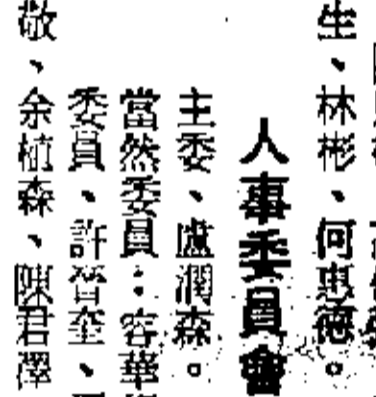 生、林彬、何惠德。
人事委員會
主委、盧潤森。
當然委員：容華
委員、許晉奎、
敬、余植森、陳君澤